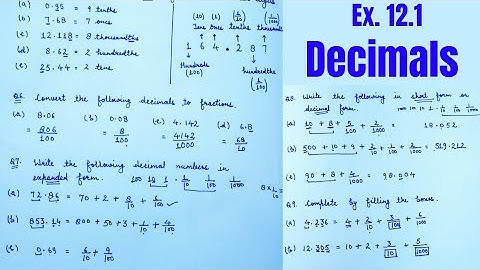 Ex. 12.1
Decimals
(a) 0.95 = 9 tenths
(b) 7.68 = 7 ones
(c) 12.118 = 8 thousandths
(d) 8.62 = 2 hundredths
(e) 25.44 = 2 tens
(10) (1) (1/10) thousandths
Tens Ones tenths
1 6 4 . 2 8 7
Hundreds (100)
hundredths (1/100)
Q6. Convert the following decimals to fractions.
(a) 8.06 = 806/100
(b) 0.08 = 8/100
(c) 4.142 = 4142/1000
(d) 6.8 = 68/10
Q7. Write the following decimal numbers in
expanded form. 100 10 1 . 1/10 1/100 1/1000
(a) 72.86 = 70 + 2 + 8/10 + 6/100 ✓
(b) 853.14 = 800 + 50 + 3 + 1/10 + 4/100
(c) 0.69 = 6/10 + 9/100
Q8. Write the following in short form or
decimal form. 100 10 1 . 1/10 1/100 1/1000
(a) 10 + 8 + 5/100 + 2/1000 = 18.052
(b) 500 + 10 + 9 + 2/10 + 1/100 + 2/1000 = 519.212
(c) 90 + 8 + 4/1000 = 98.004
Q9. Complete by filling the boxes.
(a) 4.236 = 4 + 2/10 + 3/100 + 6/1000
(b) 12.305 = 10 + 2 + 3/10 + 5/1000